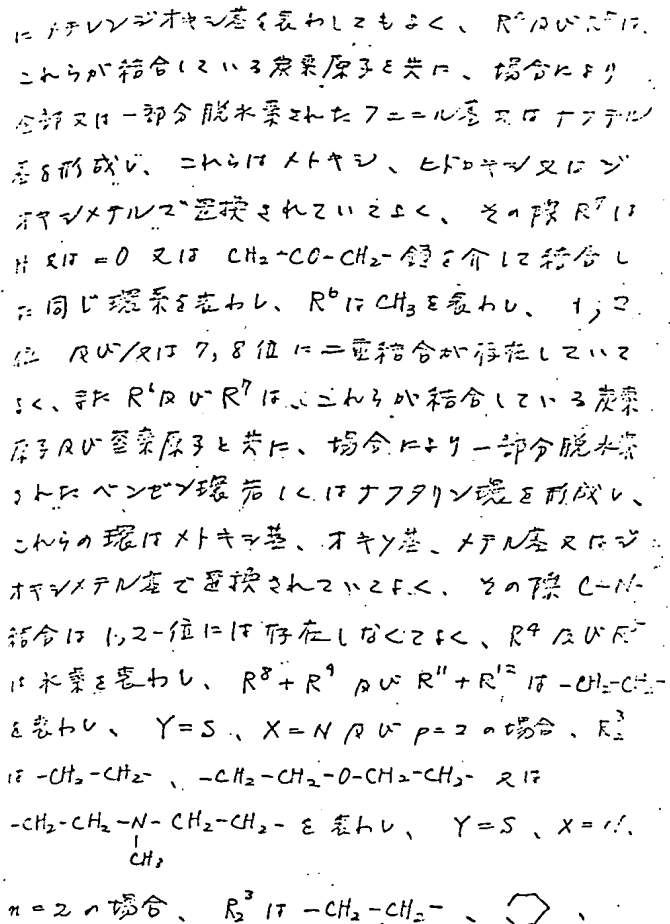 にメチレンジオキシ基を表わしてもよく、R⁴及びR⁵は、
これらが結合している炭素原子と共に、場合により
全部又は一部分脱水素されたフェニル基又はナフチル
基を形成し、これらはメトキシ、ヒドロキシ又はジ
オキシメチルで置換されていてよく、その際R⁷は
H又は=O又はCH₂-CO-CH₂-鎖を介して結合し
た同じ環系を表わし、R⁶はCH₃を表わし、1,2
位 及び/又は7,8位に二重結合が存在していて
よく、またR⁶及びR⁷は、これらが結合している炭素
原子及び窒素原子と共に、場合により一部分脱水素
されたベンゼン環若しくはナフタリン環を形成し、
これらの環はメトキシ基、オキソ基、メチル基又はジ
オキシメチル基で置換されていてよく、その際C-N-
結合は1,2-位には存在しなくてよく、R⁴及びR⁵
は水素を表わし、R⁸+R⁹及びR¹¹+R¹²は-CH₂-CH₂-
を表わし、Y=S、X=N及びp=2の場合、R₂³
は-CH₂-CH₂-、-CH₂-CH₂-O-CH₂-CH₂-又は
-CH₂-CH₂-N-CH₂-CH₂-を表わし、Y=S、X=N、
CH₃
n=2の場合、R₂³は-CH₂-CH₂-、、